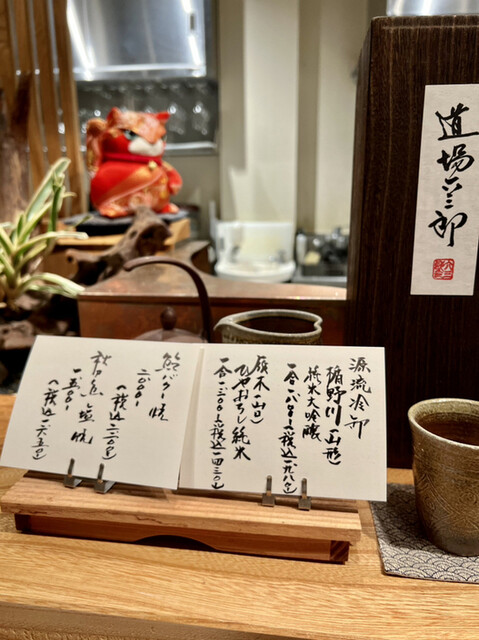 道場六三郎
源流冷卸
楯野川(山形)
純米大吟醸
一合一八〇〇-(税込一九八〇)
雁木(山口)
ひやおろし純米
一合一三〇〇-(税込一四三〇)
鮑バター焼
二〇〇〇-
(税込二二〇〇)
秋刀魚塩焼
一五〇〇-
(税込一六五〇)